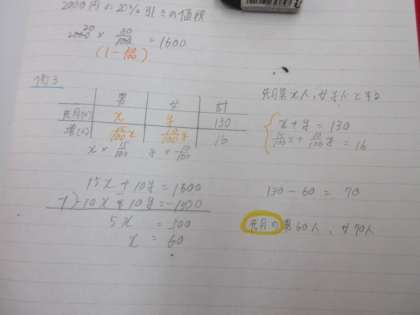 2000円の20%引きの値段
2000 × 20/100 = 1600
(1 - 20/100)
例3
男 女 計
先月(人) x y 130
増(人) 15/100 x 10/100 y 16
x × 15/100 y × 10/100
15x + 10y = 1600
+) -10x + 10y = -1300
5x = 300
x = 60
先月男x人、女y人とする
x + y = 130
15/100 x + 10/100 y = 16
130 - 60 = 70
先月の男60人、女70人